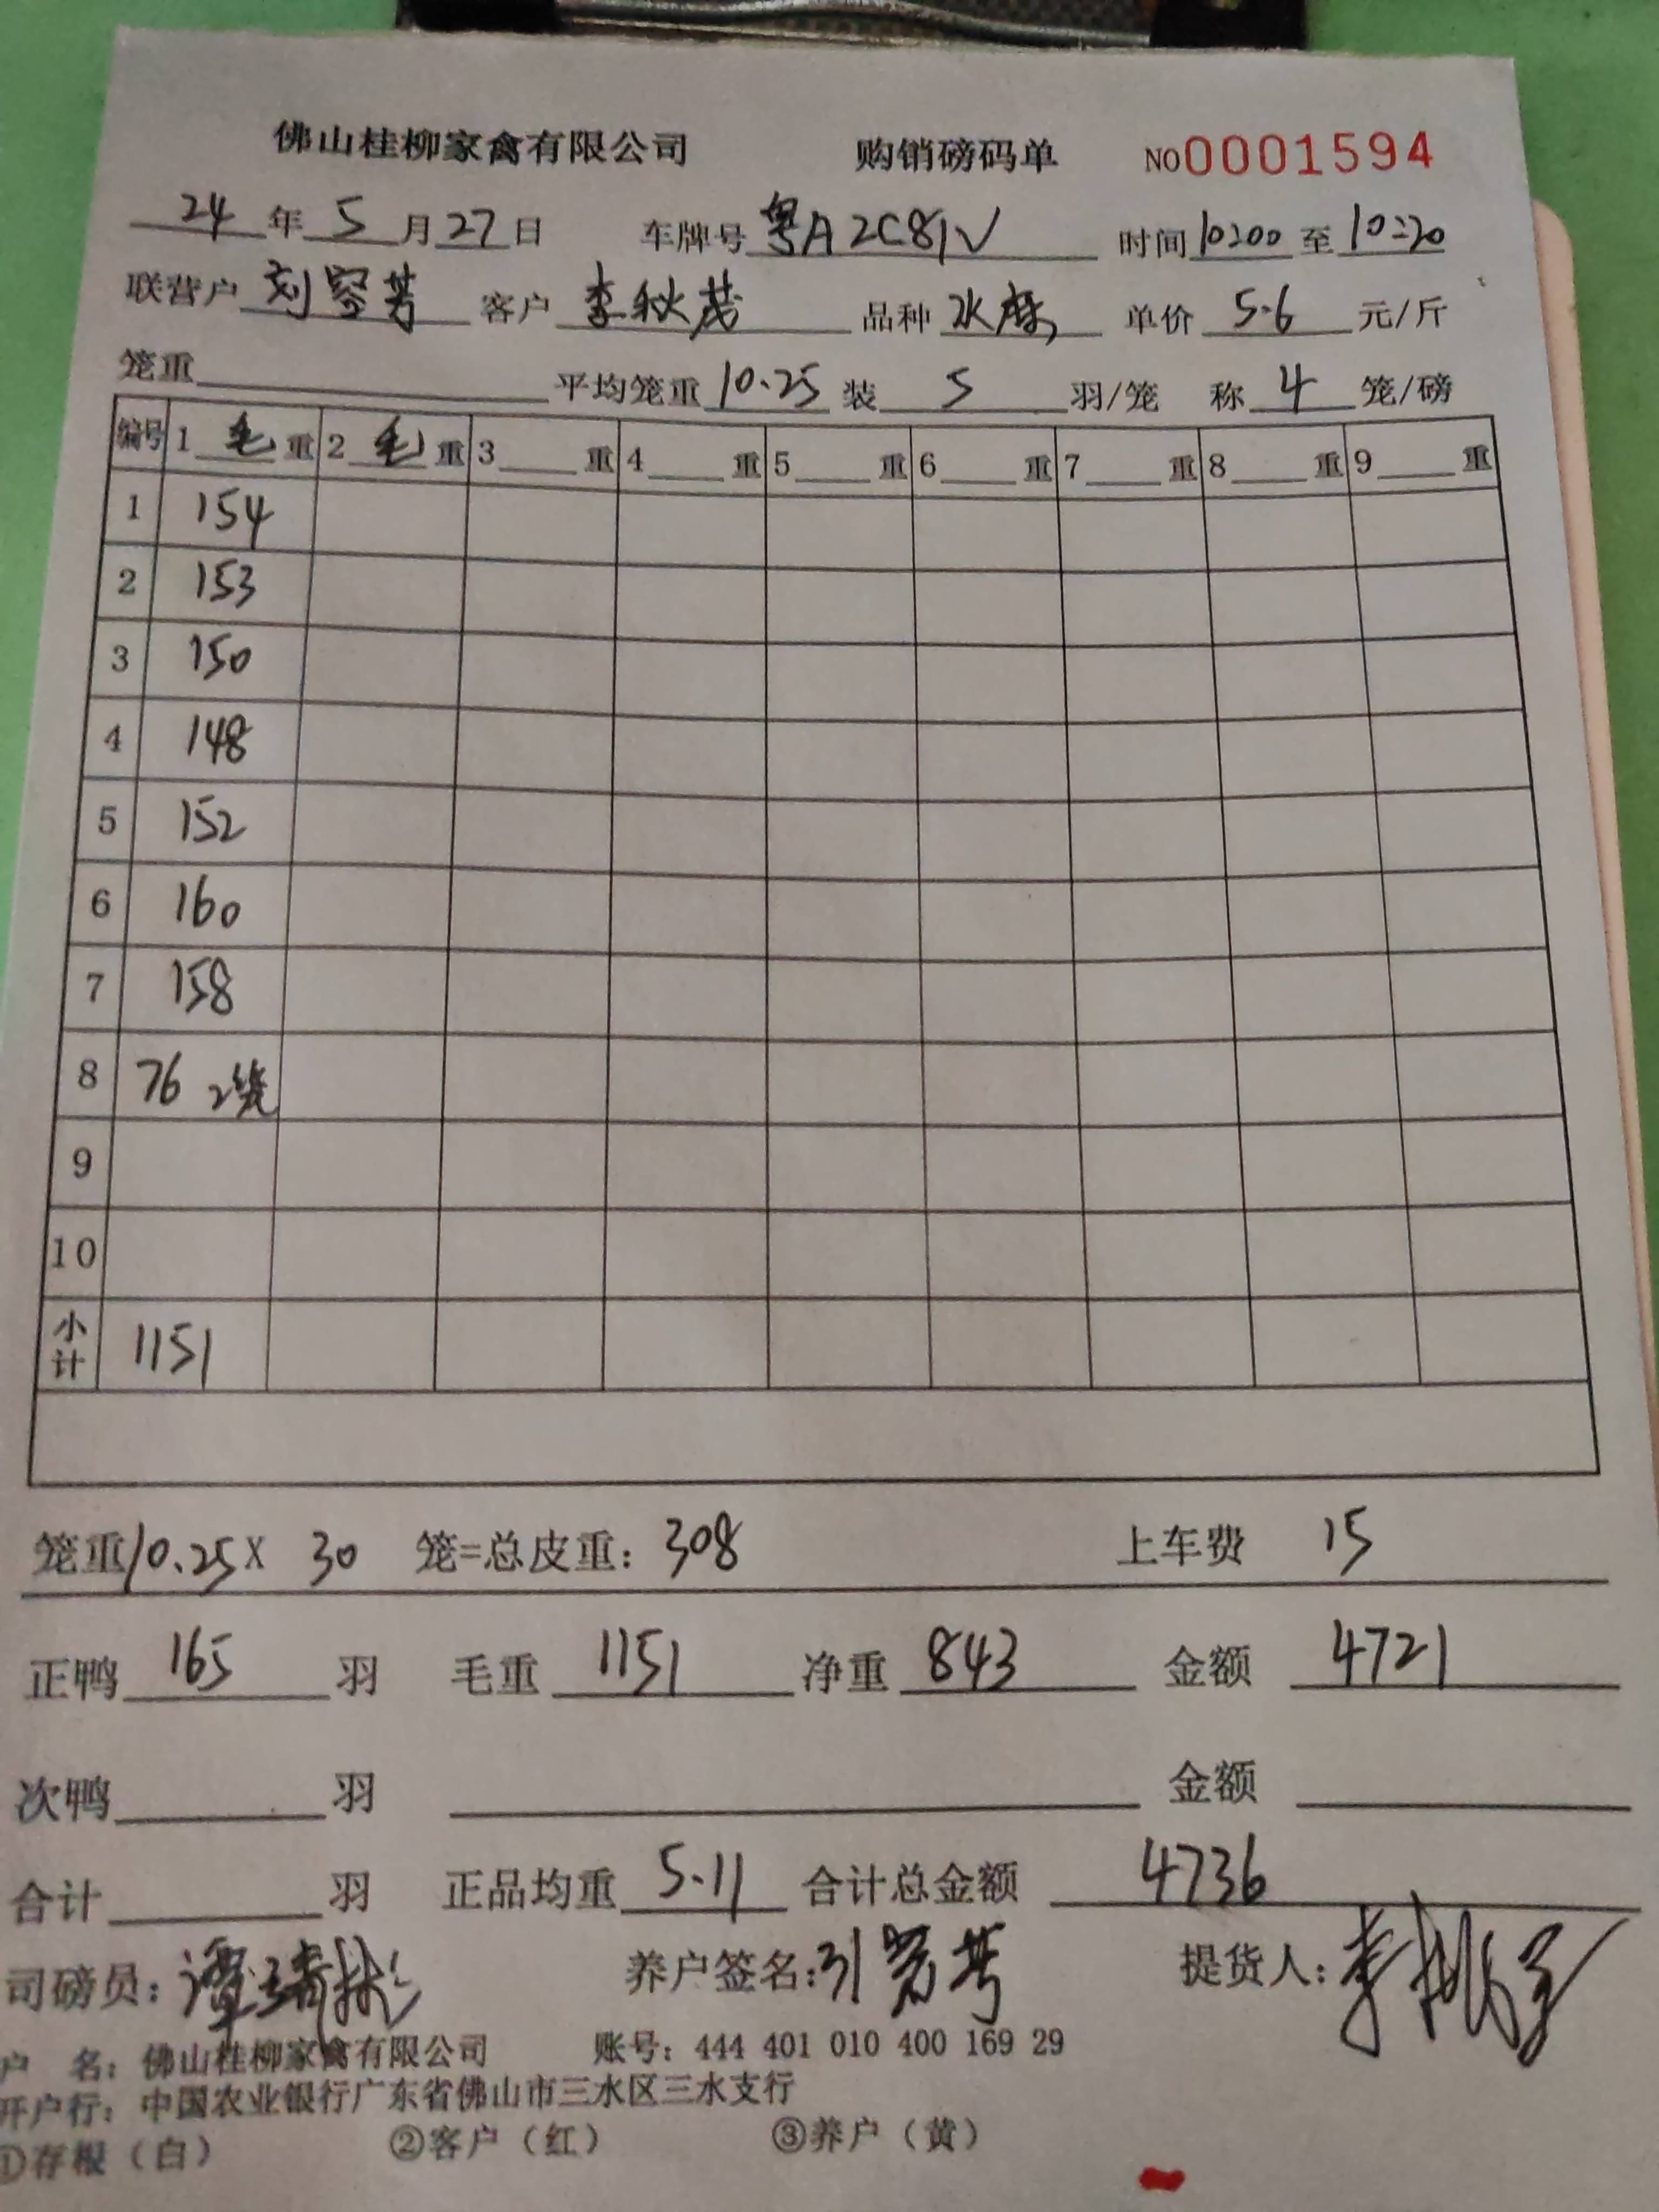 佛山桂柳家禽有限公司 购销磅码单 NO0001594
24年5月27日 车牌号 粤A2C81V 时间10:00至10:20
联营户 刘容芳 客户 李秋茂 品种 水 单价 5.6 元/斤
笼重 平均笼重 10.25 装 5 羽/笼 称 4 笼/磅
编号 1 毛 重 2 毛 重 3 重 4 重 5 重 6 重 7 重 8 重 9 重
1 154
2 153
3 150
4 148
5 152
6 160
7 158
8 76 2笼
9
10
小计 1151
笼重10.25X 30 笼=总皮重: 308 上车费 15
正鸭 165 羽 毛重 1151 净重 843 金额 4721
次鸭 羽 金额
合计 羽 正品均重 5.11 合计总金额 4736
司磅员: 谭 养户签名: 容芳 提货人: 李
户 名: 佛山桂柳家禽有限公司 账号: 444 401 010 400 169 29
开户行: 中国农业银行广东省佛山市三水区三水支行
①存根（白） ②客户（红） ③养户（黄）